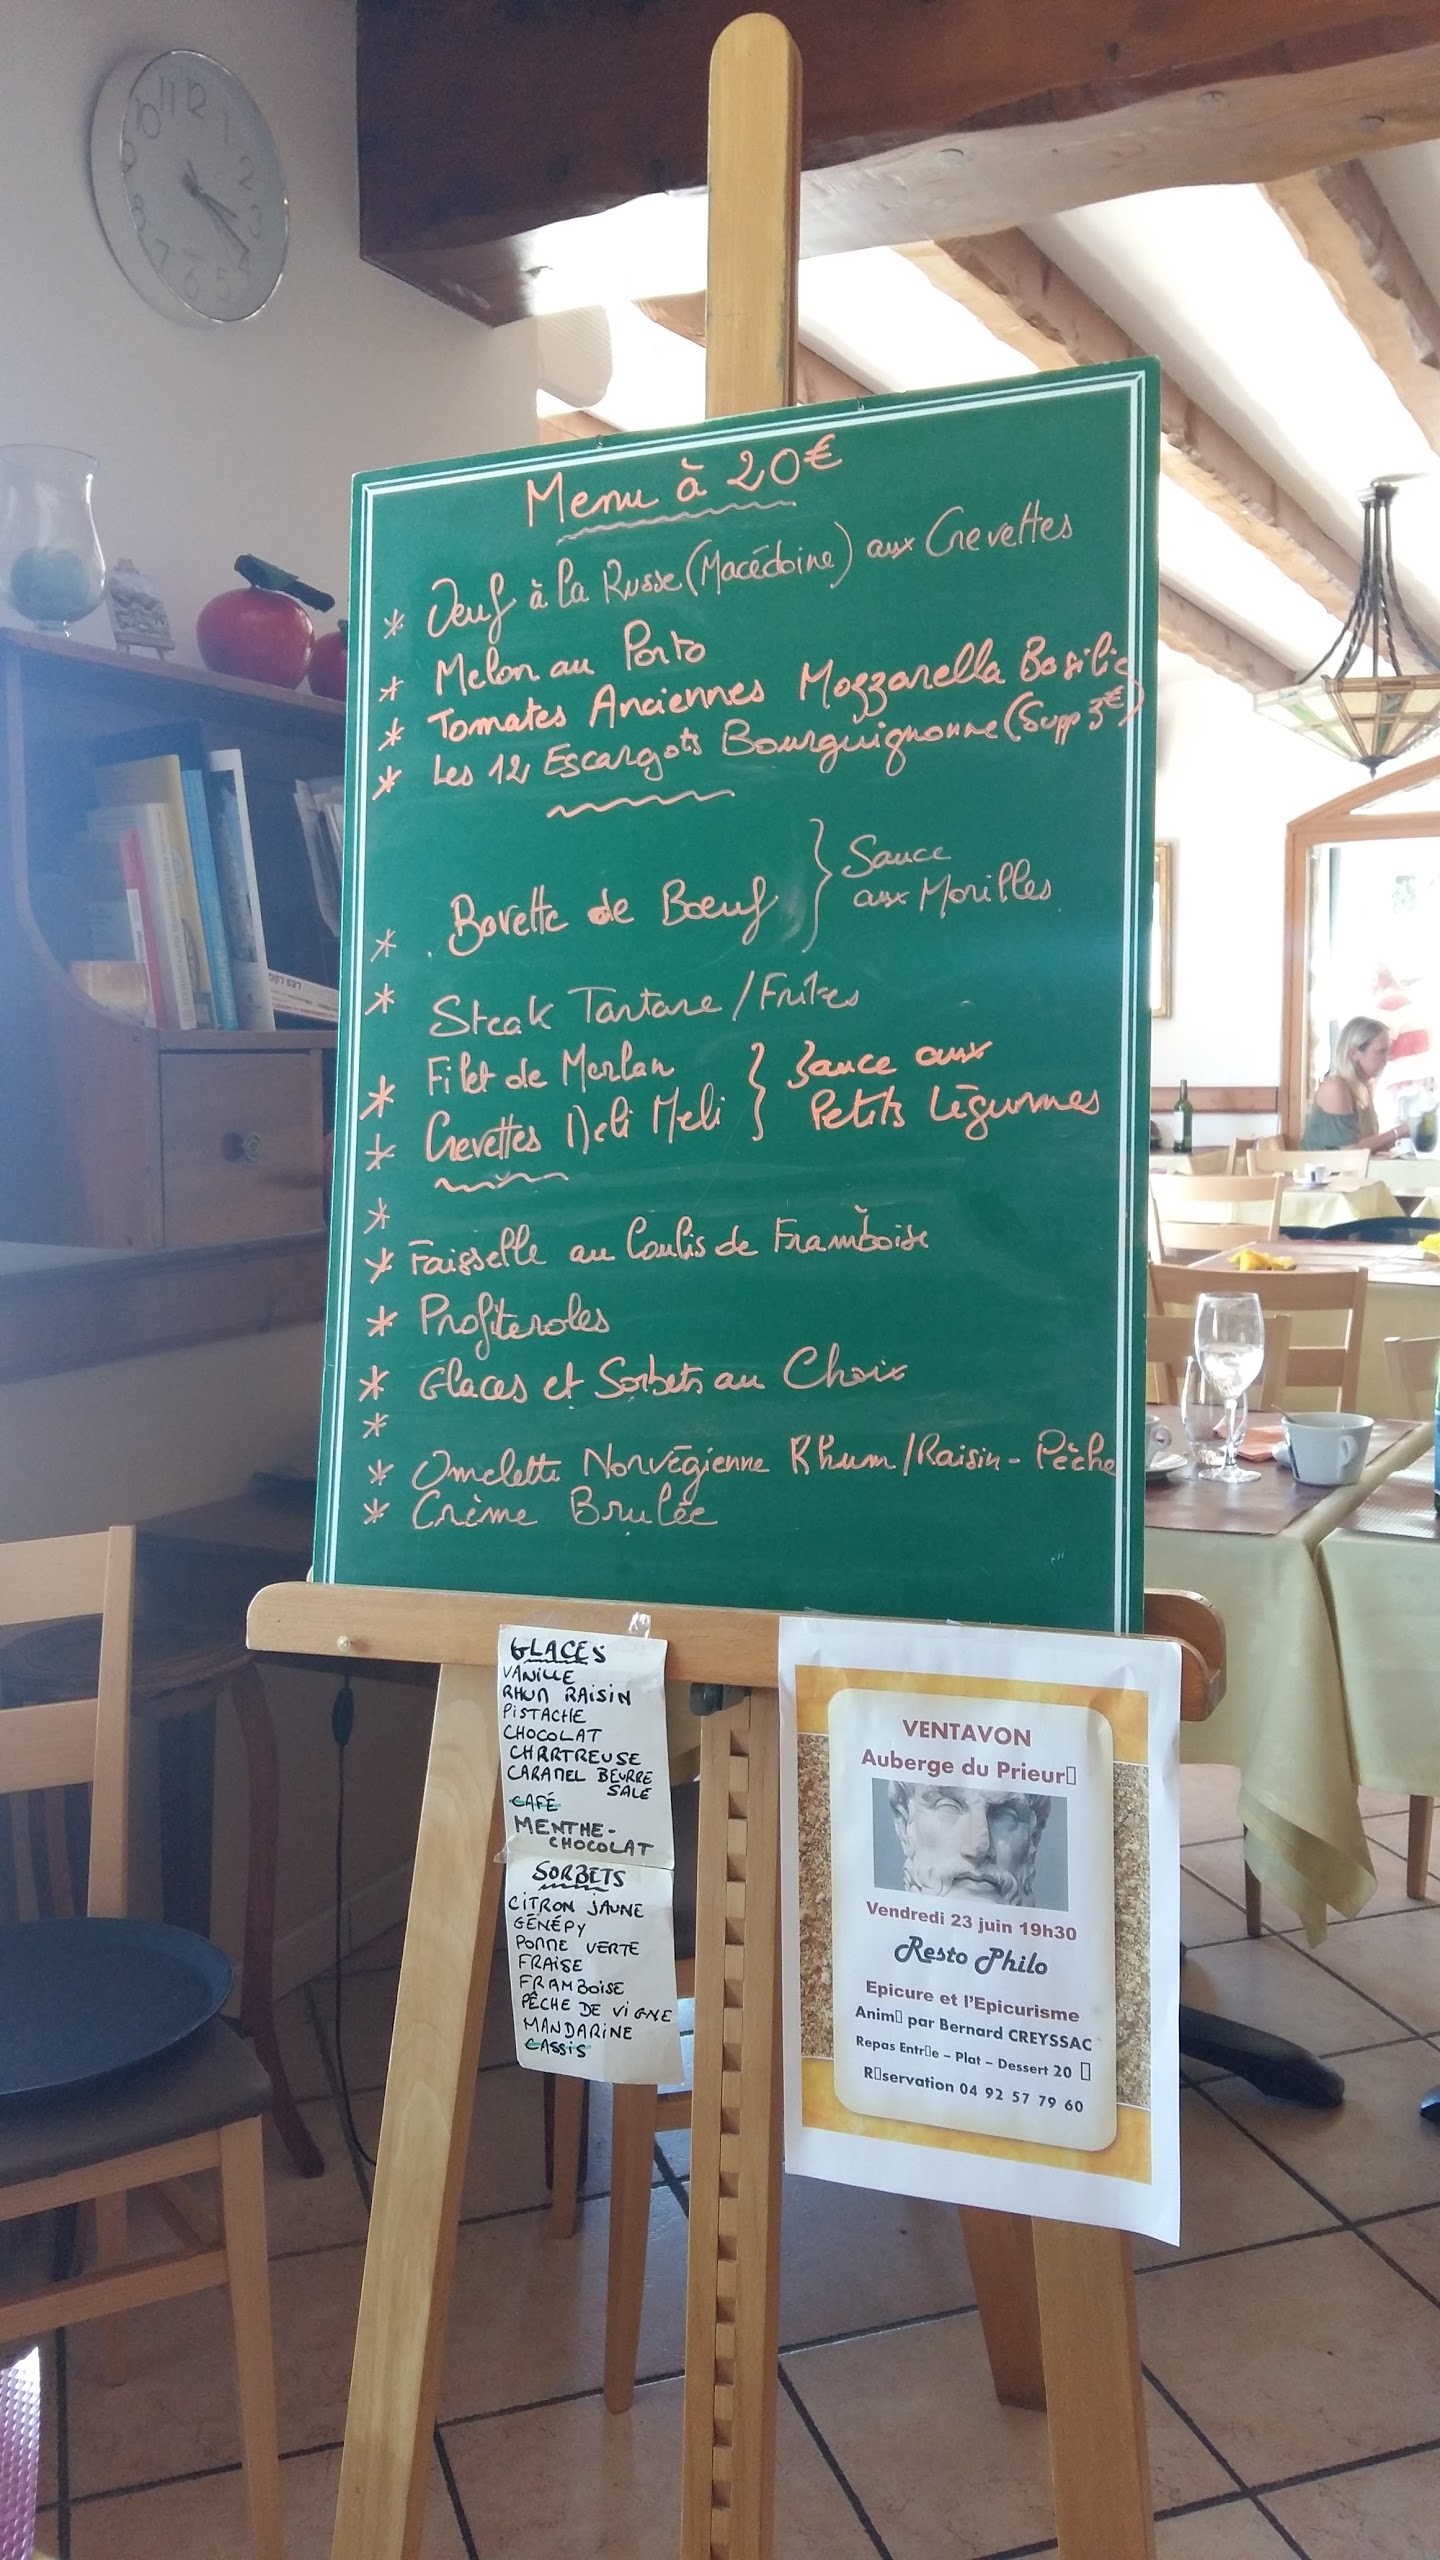 10 11 12 1 2 3 4 5 6 7 8 9
Menu à 20€
* Oeuf à la Russe (Macédoine) aux Crevettes
* Melon au Porto
* Tomates Anciennes Mozzarella Basilic
* Les 12 Escargots Bourguignonne (Supp 3€)
* Bavette de Bœuf } Sauce
aux Morilles
* Steak Tartare / Frites
* Filet de Merlan } Sauce aux
* Crevettes Méli Meli } Petits Légumes
*
* Faisselle au Coulis de Framboise
* Profiteroles
* Glaces et Sorbets au Choix
*
* Omelette Norvégienne Rhum/Raisin - Pêche
* Crème Brulée
GLACES
VANILLE
RHUM RAISIN
PISTACHE
CHOCOLAT
CHARTREUSE
CARAMEL BEURRE
SALÉ
CAFÉ
MENTHE-
CHOCOLAT
SORBETS
CITRON JAUNE
GÉNÉPY
POMME VERTE
FRAISE
FRAMBOISE
PÊCHE DE VIGNE
MANDARINE
CASSIS
VENTAVON
Auberge du Prieur▯
Vendredi 23 juin 19h30
Resto Philo
Epicure et l'Epicurisme
Anim▯ par Bernard CREYSSAC
Repas Entr▯e – Plat – Dessert 20 ▯
R▯servation 04 92 57 79 60